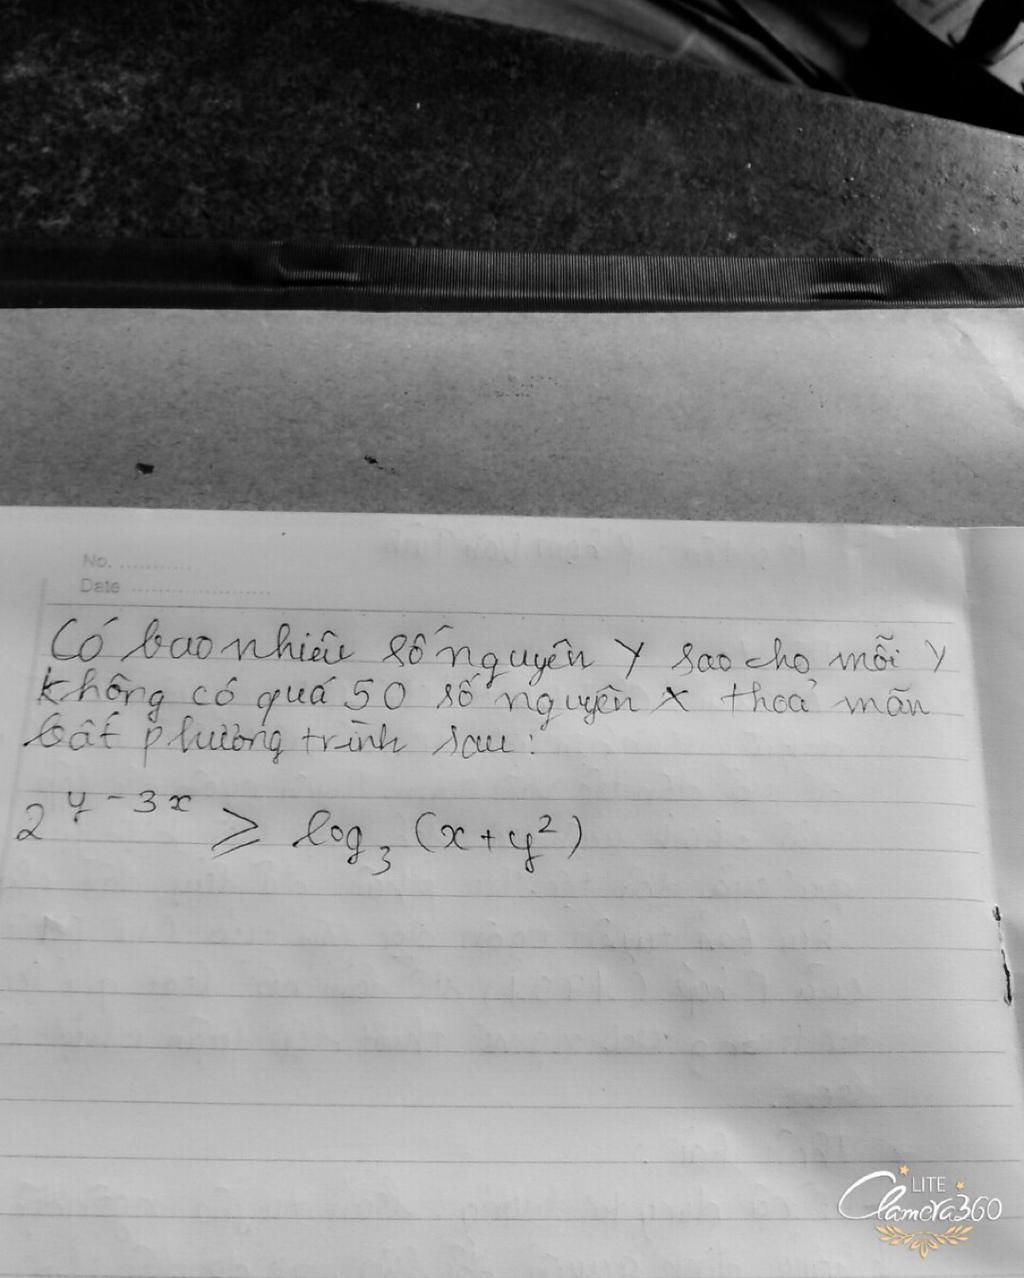 No. ..........
Date ....................
Có bao nhiêu số nguyên y sao cho mỗi y
không có quá 50 số nguyên x thoả mãn
bất phương trình sau:
2^{y-3x} ≥ log₃ (x+y²)
LITE
Camera360